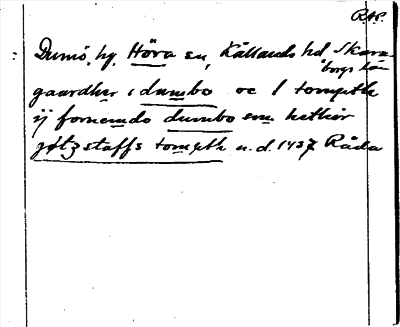 RAP.
Dumö, hg, Höra sn, Kållands hd Skara-
borgs län
gaardher i dumbo oc 1 tompth
ij fornemdo dumbo som hethir
gøtzstaffs tompth u.d. 1437 Råda